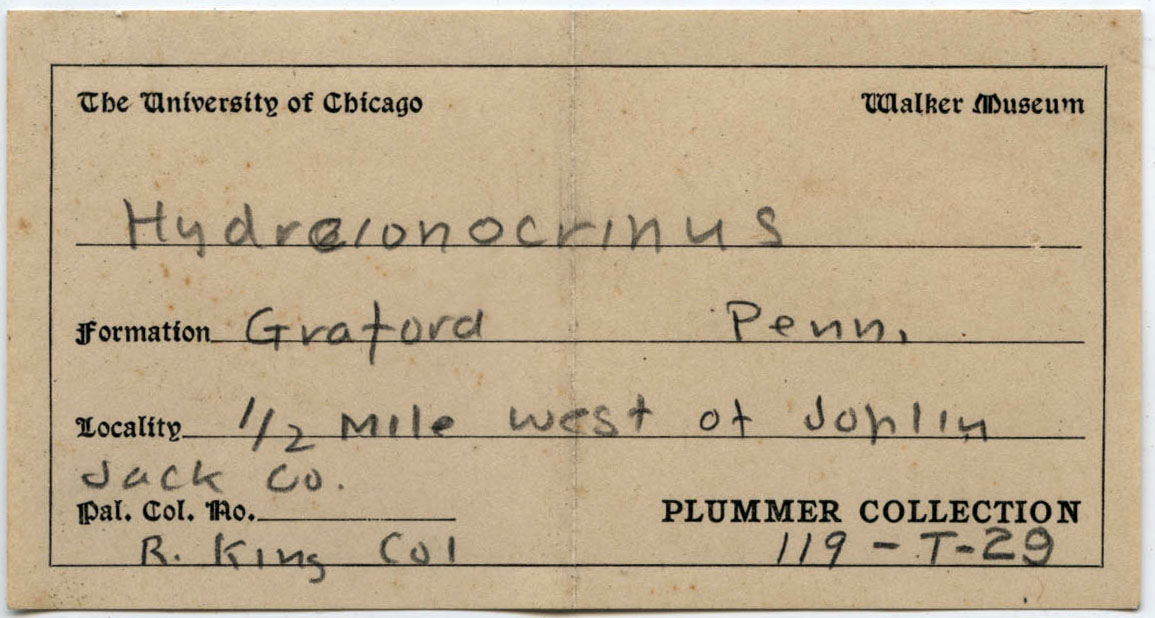 The University of Chicago Walker Museum
Hydreionocrinus
Formation Graford Penn.
Locality 1/2 Mile west of Joplin
Jack Co.
Pal. Col. No. PLUMMER COLLECTION
R. King Col 119-T-29